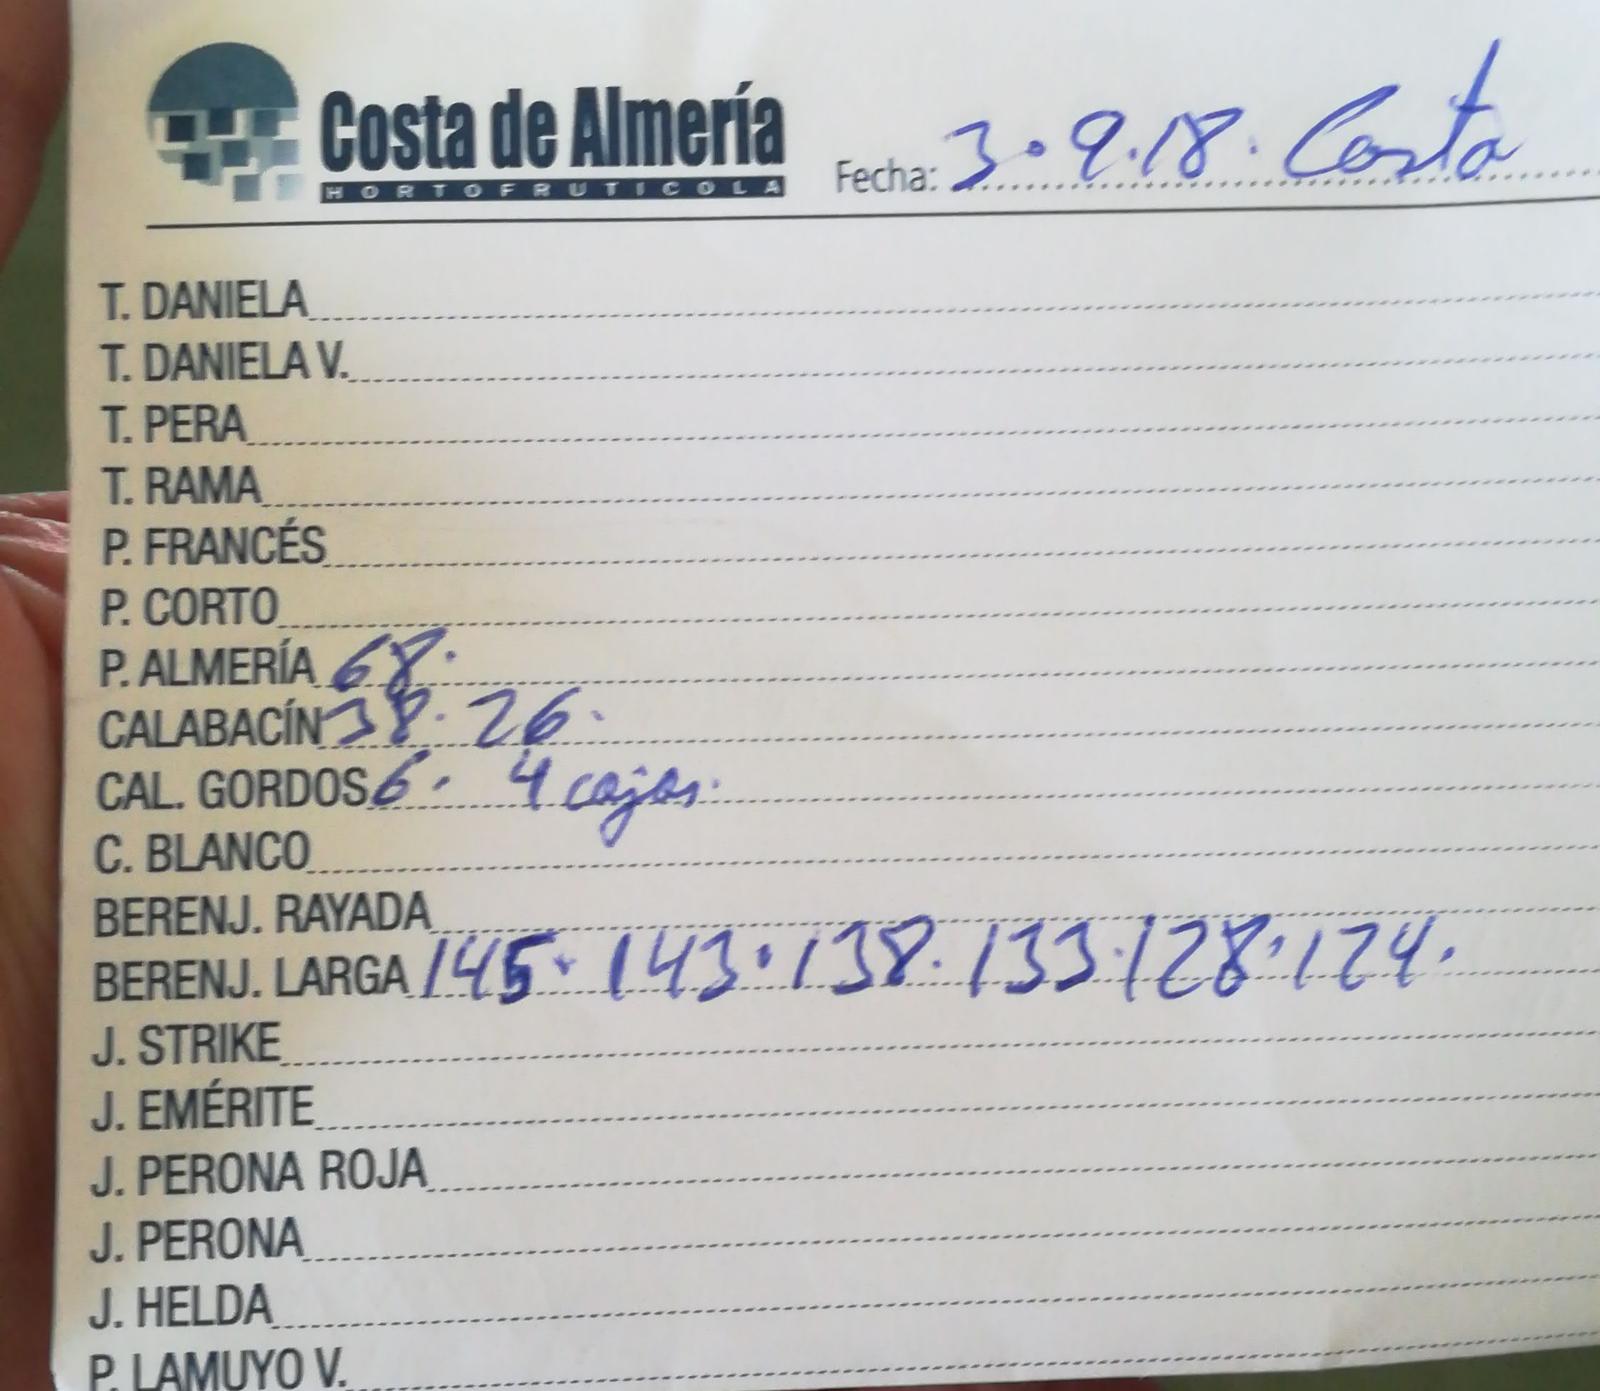 Costa de Almería
HORTOFRUTICOLA
Fecha: 3.9.18. Costa
T. DANIELA
T. DANIELA V.
T. PERA
T. RAMA
P. FRANCÉS
P. CORTO
P. ALMERÍA 68.
CALABACÍN 38. 26.
CAL. GORDOS 6. 4 cajas.
C. BLANCO
BERENJ. RAYADA
BERENJ. LARGA 145. 143. 138. 133. 128. 124.
J. STRIKE
J. EMÉRITE
J. PERONA ROJA
J. PERONA
J. HELDA
P. LAMUYO V.